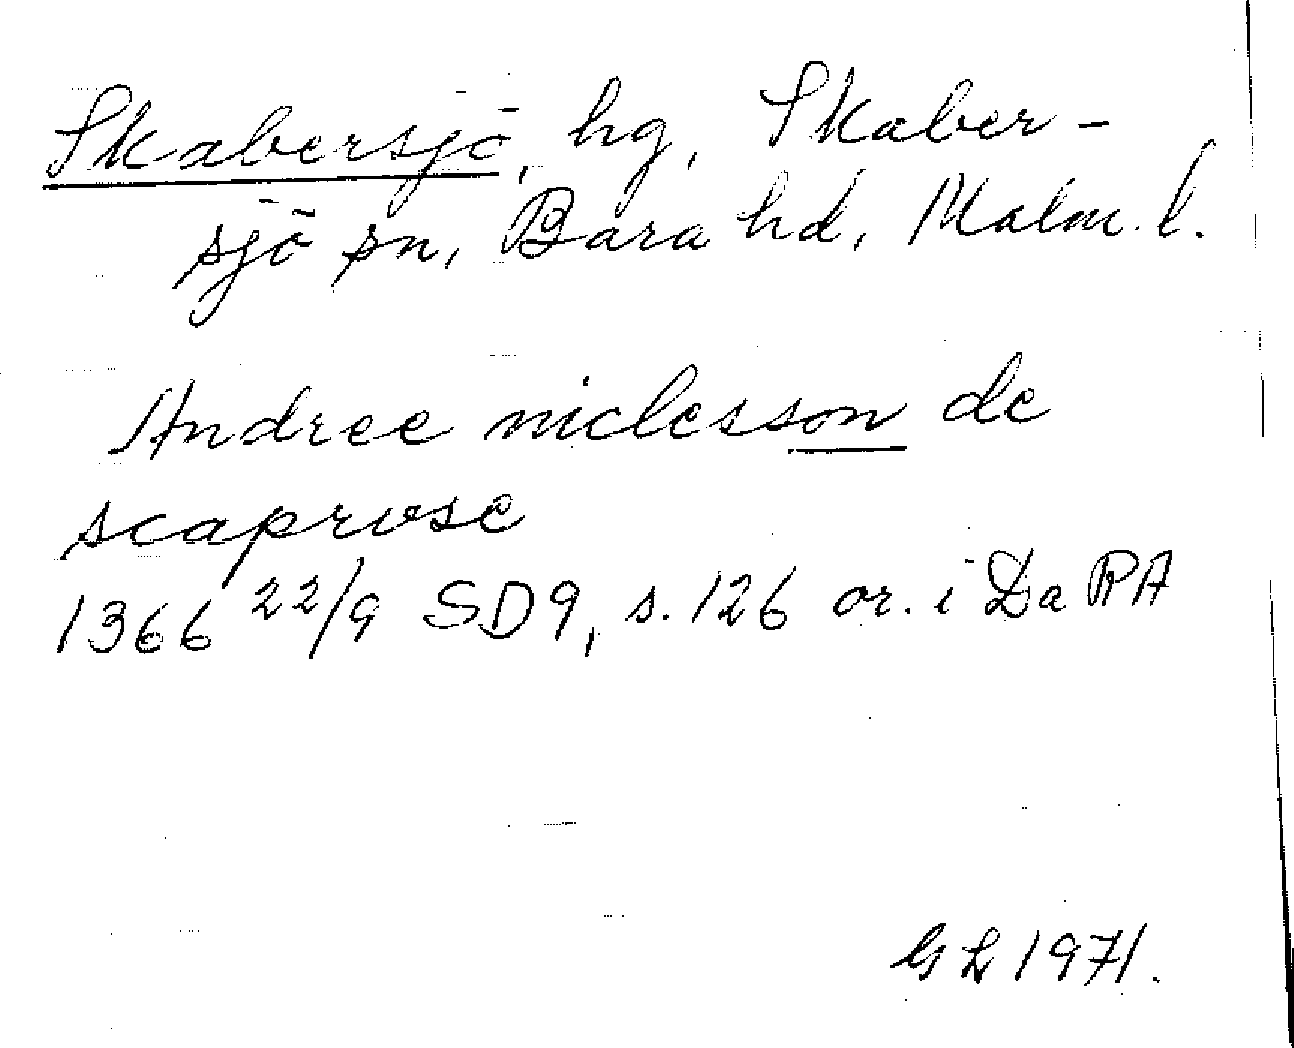 Skabersjö, hg, Skaber-
sjö sn, Bara hd, Malm. l.
Andree niclesson de
scaprvse
1366 22/9 SD9, s. 126 or. i DaRA
GL 1971.